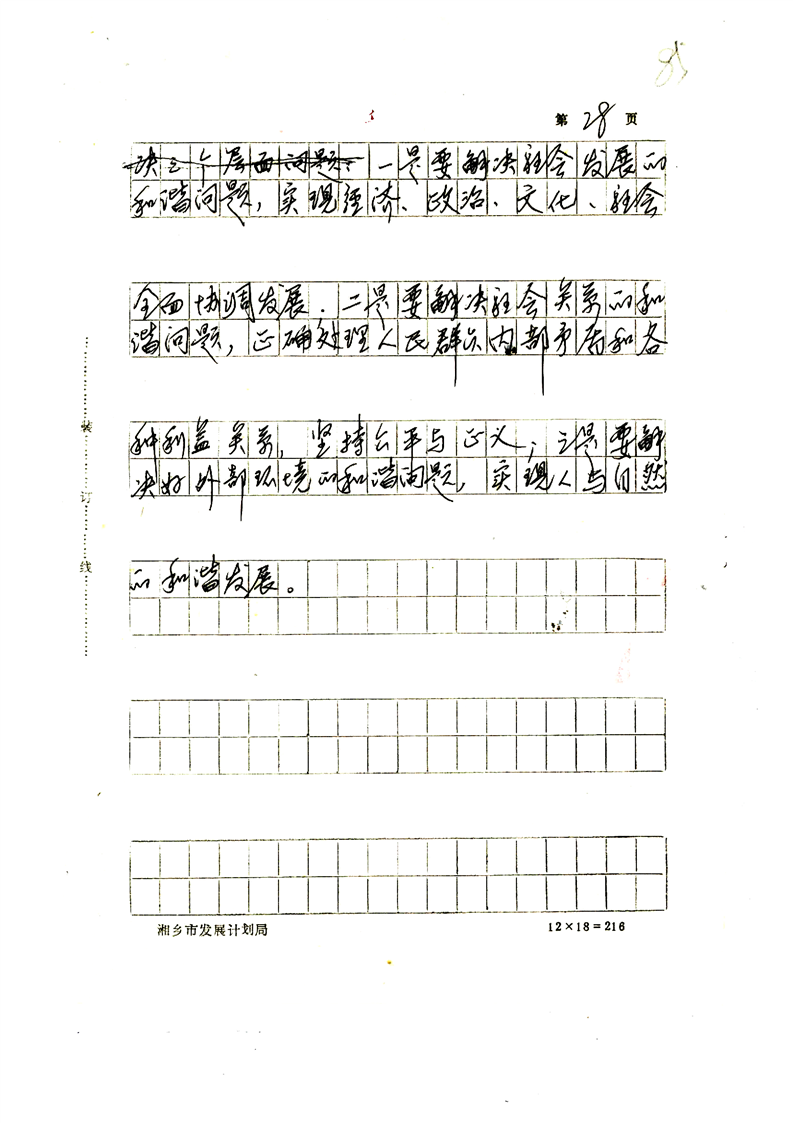 85
第28页
决三个层面问题：一是要解决社会发展的
和谐问题，实现经济、政治、文化、社会
全面协调发展．二是要解决社会关系的和
谐问题，正确处理人民群众内部矛盾和各
种利益关系，坚持公平与正义；三是要解
决好外部环境的和谐问题，实现人与自然
的和谐发展。
装
订
线
湘乡市发展计划局
12×18=216